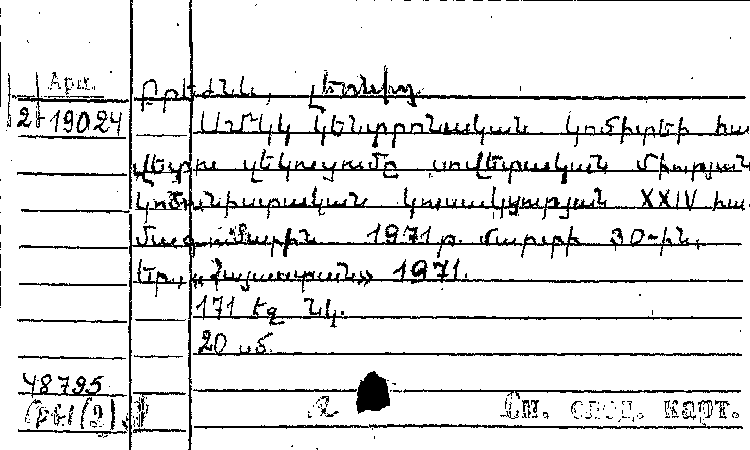 Арм.
Բրեժնև, Լեոնիդ
2 19024
ՍՄԿԿ Կենտրոնական կոմիտեի հա
շվետու զեկուցումը սովետական Միության
կոմունիստական կուսակցության XXIV հա
մագումարին 1971 թ. մարտի 30-ին,
Եր., «Հայաստան» 1971.
171 էջ նկ.
20 սմ.
48795
См. след. карт.